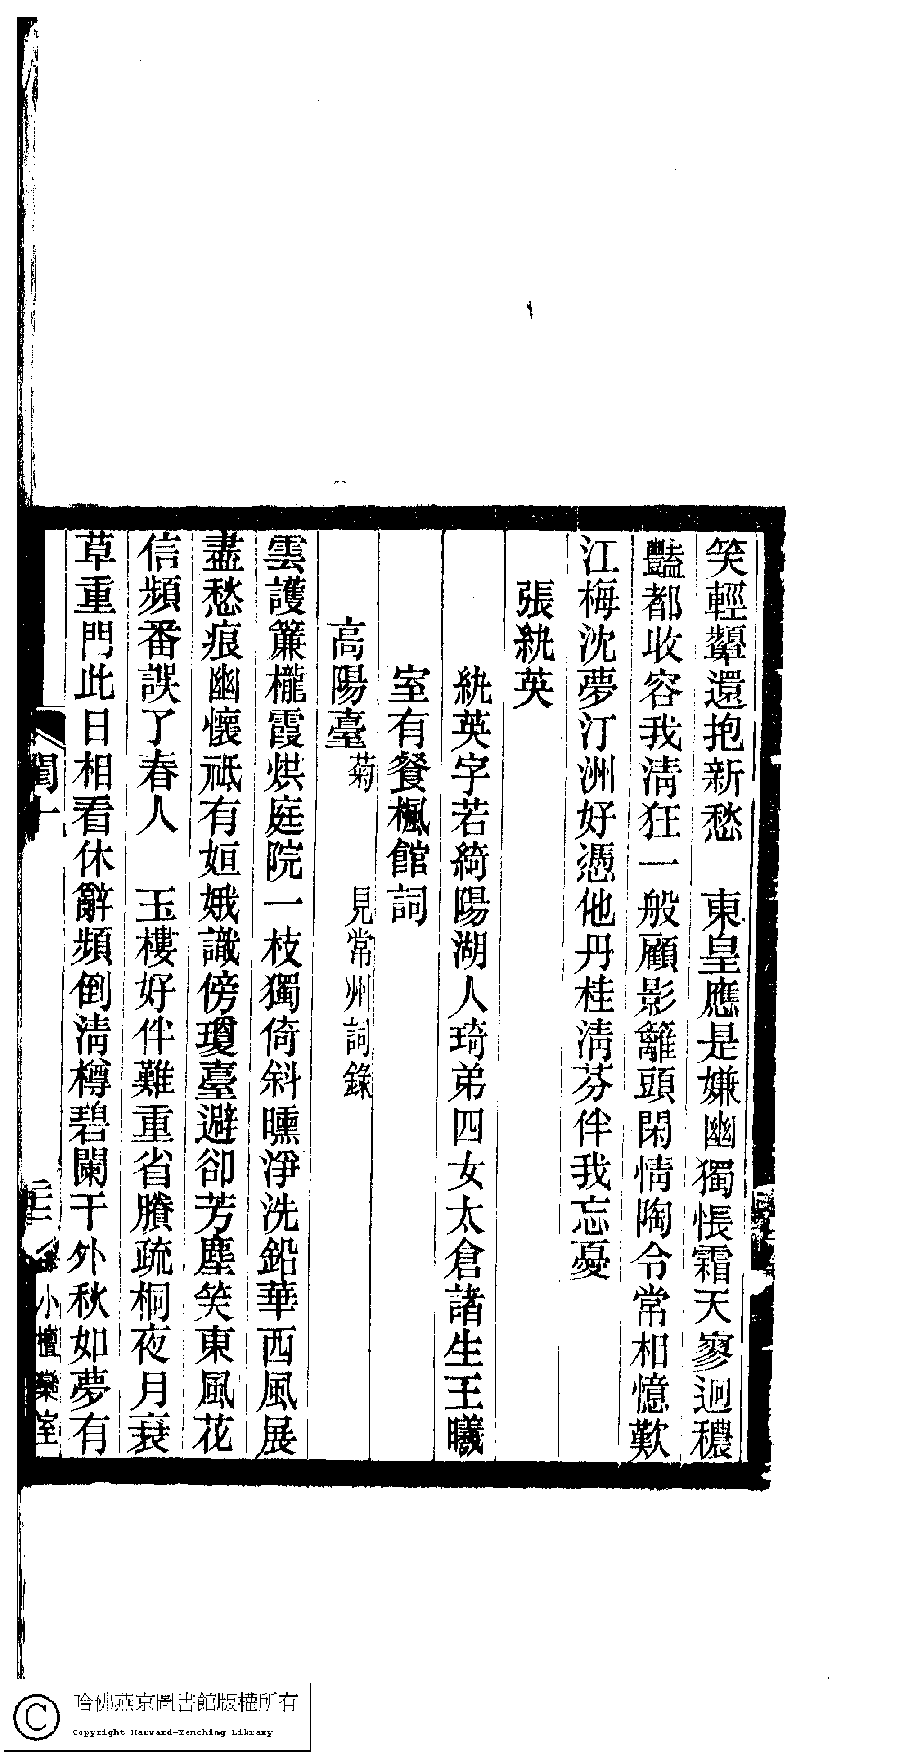 笑輕顰還抱新愁　東皇應是嫌幽獨悵霜天寥迥穠
豔都收容我淸狂一般顧影籬頭閑情陶令常相憶歎
江梅沈夢汀洲好憑他丹桂淸芬伴我忘憂
張紈英
紈英字若綺陽湖人琦弟四女太倉諸生王曦
室有餐楓館詞
高陽臺菊　見常州詞錄
雲護簾櫳霞烘庭院一枝獨倚斜曛淨洗鉛華西風展
盡愁痕幽懷祗有姮娥識傍瓊臺避卻芳塵笑東風花
信頻番誤了春人　玉樓好伴難重省賸疏桐夜月衰
草重門此日相看休辭頻倒淸樽碧闌干外秋如夢有
閨十
小檀欒室
哈佛燕京圖書館版權所有
Copyright Harvard-Yenching Library